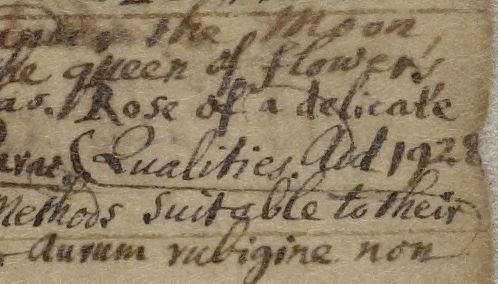 under the Moon,
the queen of flowers
as. Rose of a delicate
Qualities. Aid 1928
Methods Suitable to their
durum rubigine non